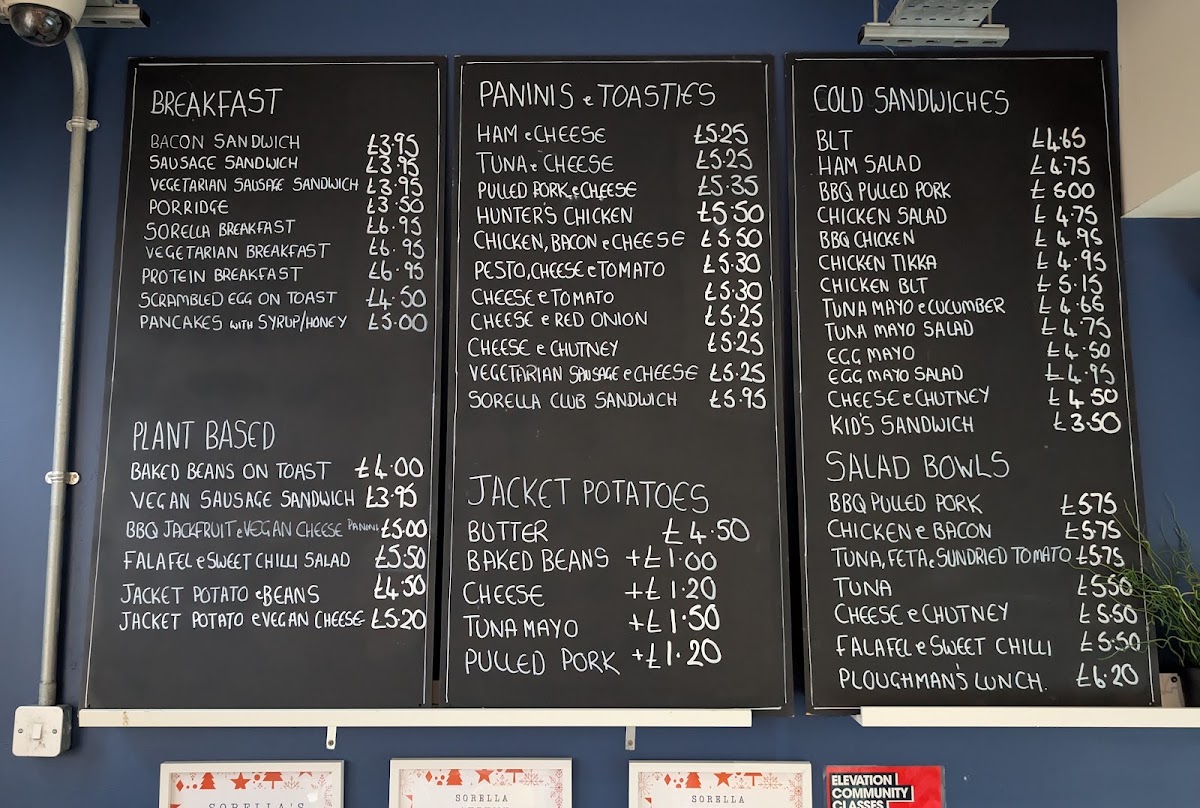 BREAKFAST
BACON SANDWICH £3.95
SAUSAGE SANDWICH £3.95
VEGETARIAN SAUSAGE SANDWICH £3.95
PORRIDGE £3.50
SORELLA BREAKFAST £6.95
VEGETARIAN BREAKFAST £6.95
PROTEIN BREAKFAST £6.95
SCRAMBLED EGG ON TOAST £4.50
PANCAKES WITH SYRUP/HONEY £5.00
PLANT BASED
BAKED BEANS ON TOAST £4.00
VEGAN SAUSAGE SANDWICH £3.95
BBQ JACKFRUIT e VEGAN CHEESE PANINI £5.00
FALAFEL e SWEET CHILLI SALAD £5.50
JACKET POTATO e BEANS £4.50
JACKET POTATO e VEGAN CHEESE £5.20
PANINIS e TOASTIES
HAM e CHEESE £5.25
TUNA e CHEESE £5.25
PULLED PORK e CHEESE £5.35
HUNTER'S CHICKEN £5.50
CHICKEN, BACON e CHEESE £5.50
PESTO, CHEESE e TOMATO £5.30
CHEESE e TOMATO £5.30
CHEESE e RED ONION £5.25
CHEESE e CHUTNEY £5.25
VEGETARIAN SAUSAGE e CHEESE £5.25
SORELLA CLUB SANDWICH £5.95
JACKET POTATOES
BUTTER £4.50
BAKED BEANS +£1.00
CHEESE +£1.20
TUNA MAYO +£1.50
PULLED PORK +£1.20
COLD SANDWICHES
BLT £4.65
HAM SALAD £4.75
BBQ PULLED PORK £500
CHICKEN SALAD £4.75
BBQ CHICKEN £4.95
CHICKEN TIKKA £4.95
CHICKEN BLT £5.15
TUNA MAYO e CUCUMBER £4.65
TUNA MAYO SALAD £4.75
EGG MAYO £4.50
EGG MAYO SALAD £4.95
CHEESE e CHUTNEY £4.50
KID'S SANDWICH £3.50
SALAD BOWLS
BBQ PULLED PORK £575
CHICKEN e BACON £575
TUNA, FETA e SUNDRIED TOMATO £575
TUNA £550
CHEESE e CHUTNEY £5.50
FALAFEL e SWEET CHILLI £5.50
PLOUGHMAN'S LUNCH. £6.20
SORELLA'S
SORELLA
SORELLA
ELEVATION
COMMUNITY
CLASSES